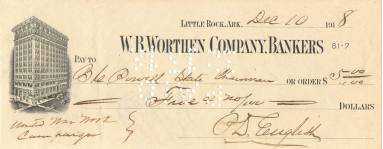 LITTLE ROCK, ARK. Dec 10 1918
W. B. WORTHEN COMPANY, BANKERS 81-7
PAY TO Powell State Chairman OR ORDER $ 5.00
Five & no/100 DOLLARS
United War Work
Campaign
English